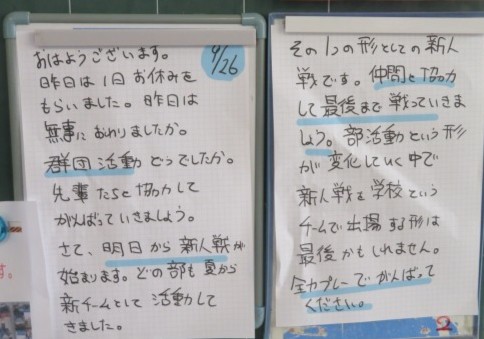 9/26
おはようございます。
昨日は1日お休みを
もらいました。昨日は
無事におわりましたか。
群団活動どうでしたか。
先輩たちと協力して
がんばっていきましょう。
さて、明日から新人戦が
始まります。どの部も夏から
新チームとして活動して
きました。
その1つの形としての新人
戦です。仲間と協力
して最後まで戦っていきま
しょう。部活動という形
が変化していく中で
新人戦を学校という
チームで出場する形は
最後かもしれません。
全力プレーでがんばって
ください。
す。
2